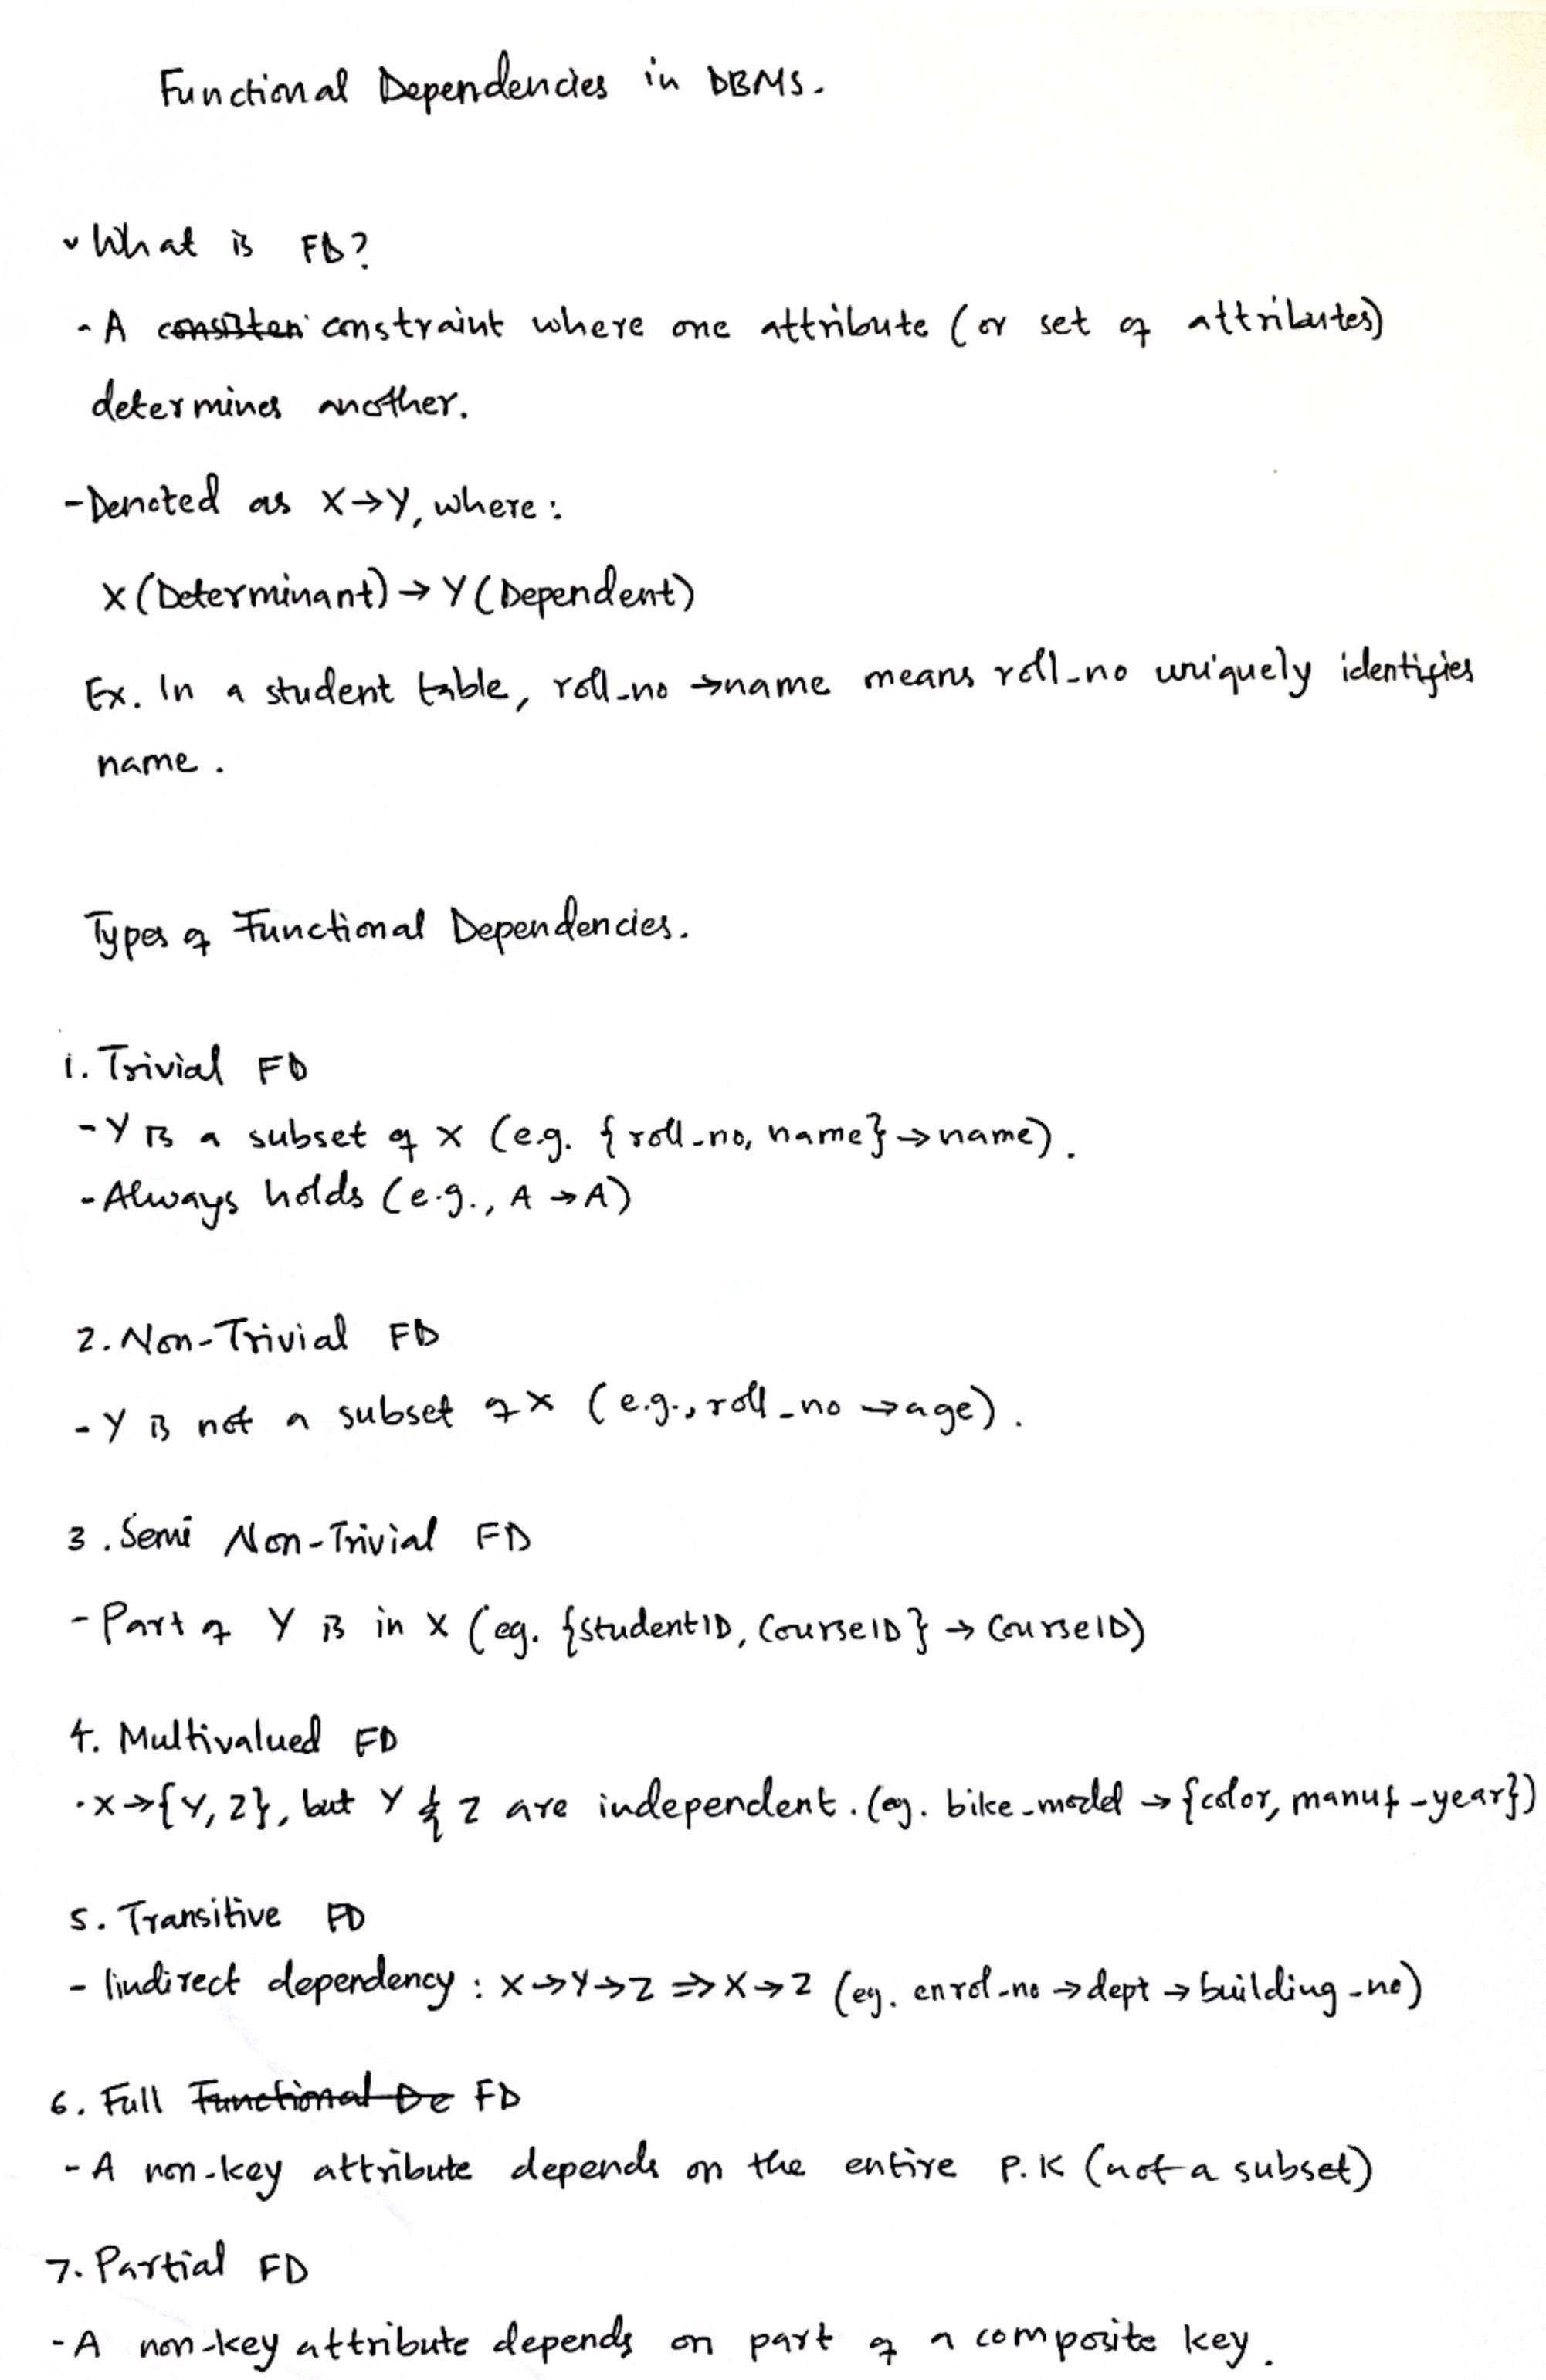 Functional Dependencies in DBMS.
What is FD?
- A consisten constraint where one attribute (or set of attributes)
determines another.
- Denoted as X→Y, where:
X (Determinant) → Y (Dependent)
Ex. In a student table, roll_no → name means roll_no uniquely identifies
name.
Types of Functional Dependencies.
1. Trivial FD
- Y is a subset of X (e.g. {roll_no, name} → name).
- Always holds (e.g., A → A)
2. Non-Trivial FD
- Y is not a subset of X (e.g., roll_no → age).
3. Semi Non-Trivial FD
- Part of Y is in X (eg. {studentID, CourseID} → CourseID)
4. Multivalued FD
· X → {Y, Z}, but Y & Z are independent. (eg. bike_model → {color, manuf_year})
5. Transitive FD
- Iindirect dependency : X → Y → Z ⇒ X → Z (eg. enrol_no → dept → building_no)
6. Full Functional De FD
- A non-key attribute depends on the entire P.K (not a subset)
7. Partial FD
- A non-key attribute depends on part of a composite key.